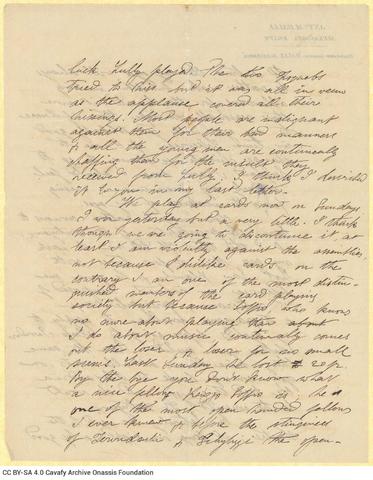 luck Lully played. The two Zogrebs
tried to hiss but it was all in
as the applause covered all their
hissings! Most people are indignant
against them for their bad manners
& all the young men are continually
chaffing them for the insult they
received from Lully. I think I
it to you in my last letter.
We play at cards now on Sundays
I won yesterday but a very little. I think
though we are going to discontinue it, at
least I am violently against the assemblies,
not because I dislike cards on the
contrary I am one of the most distin-
guished members of the card playing
society but because who knows
no more about playing than about
I do about music continually comes
out the loser & loser for no small
sums. Last Sunday he lost 20 p.
By the bye you don't know what
a nice fellow is; he is
one of the most open handed fellows
I ever knew & before the stinginess
of & the open-
CC BY-SA 4.0 Cavafy Archive Onassis Foundation